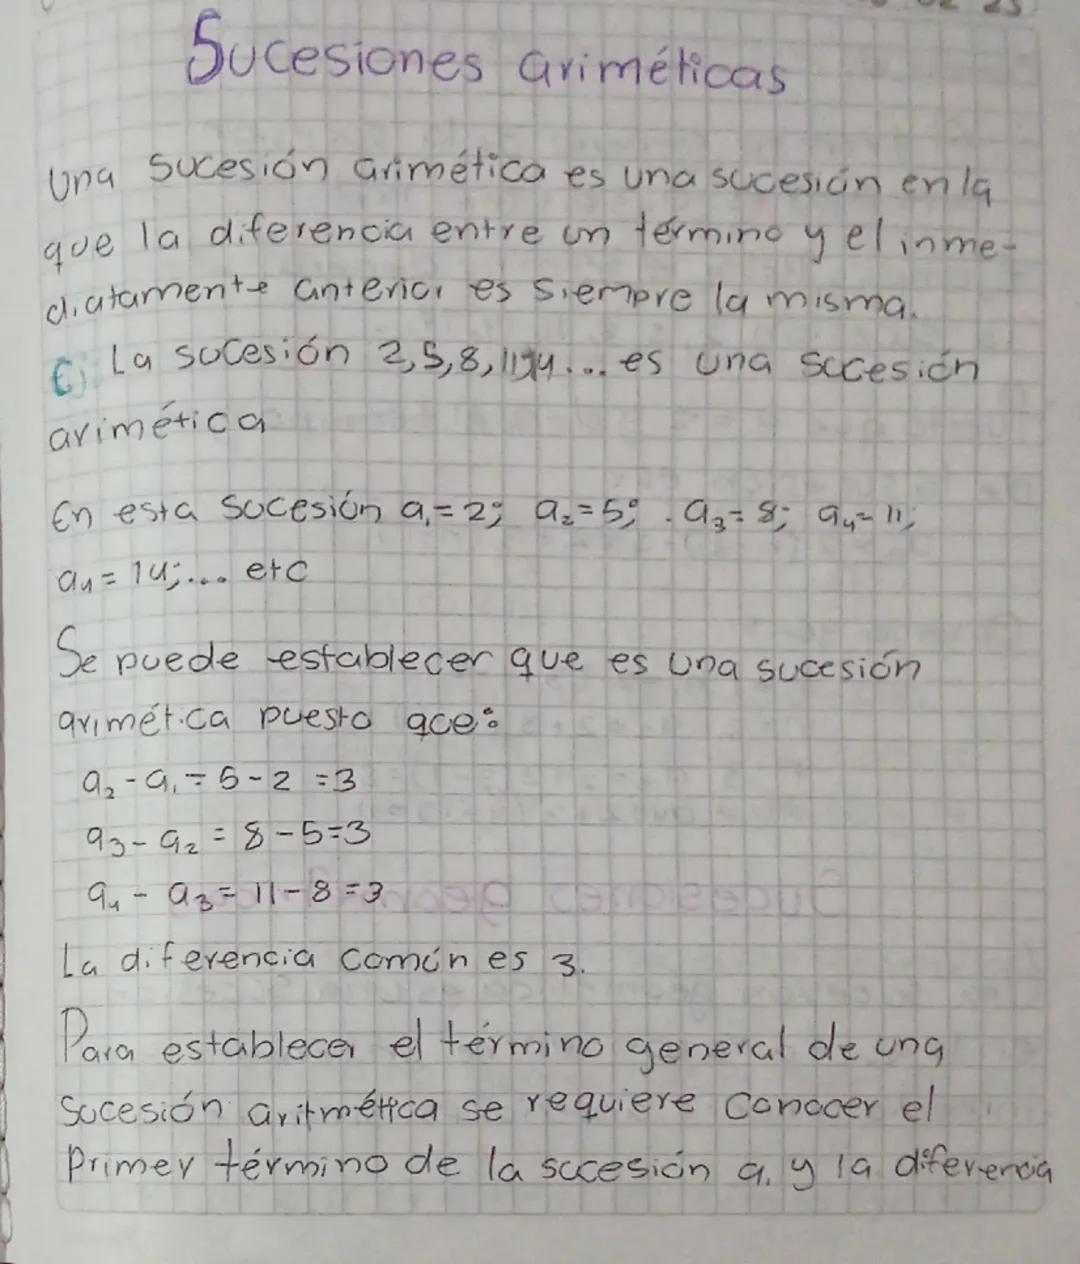 Sucesiones ariméticas
Una sucesión arimética es una sucesión en la
que la diferencia entre un término y el inme-
diatamente anterior es siempre la misma.
Ej La sucesión 2,5,8,11,14... es una sucesión
arimética
En esta sucesión a₁=2; a₂=5; a₃=8; a₄=11;
a₄=14;... etc
Se puede establecer que es una sucesión
arimética puesto que:
a₂-a₁=5-2=3
a₃-a₂=8-5=3
a₄-a₃=11-8=3
La diferencia común es 3.
Para establecer el término general de una
sucesión aritmética se requiere conocer el
primer término de la sucesión a₁ y la diferencia